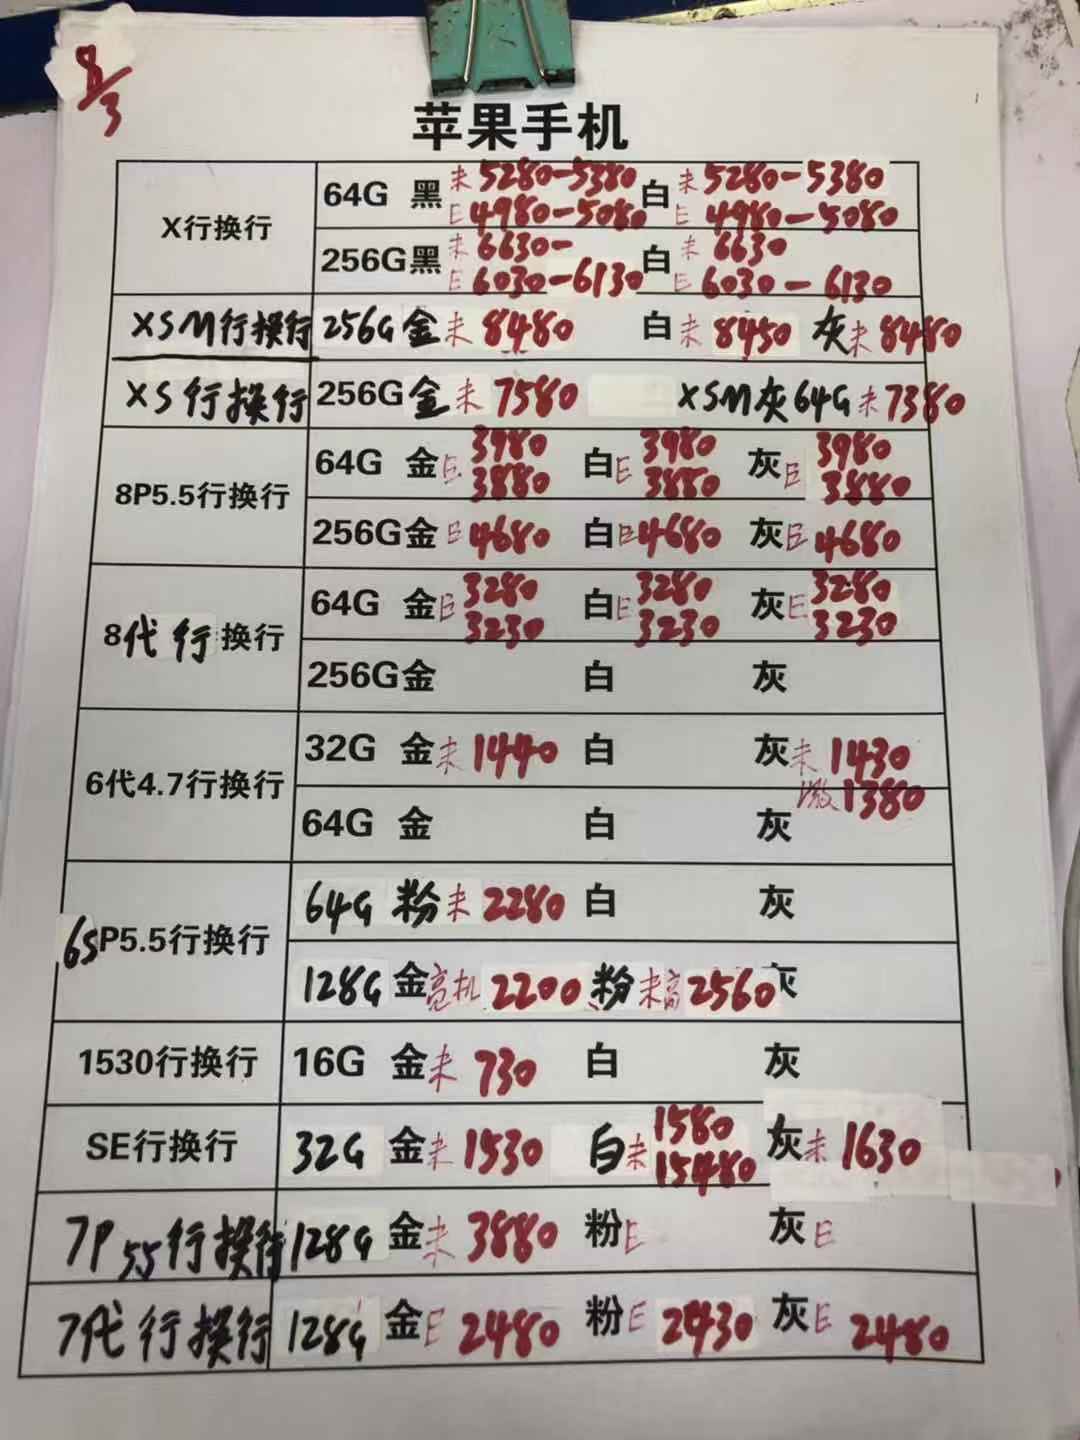 8/3
苹果手机
X行换行 64G 黑 未 5280-5380 白 未 5280-5380
E 4980-5080 E 4980-5080
256G 黑 未 6630- 白 未 6630
E 6030-6130 E 6030-6130
XSM行换行 256G 金 未 8480 白 未 8450 灰 未 8480
XS行换行 256G 金 未 7580 XSM灰64G 未 7380
8P5.5行换行 64G 金 E 3980 白 E 3980 灰 E 3980
3880 3880 3880
256G 金 E 4680 白 E 4680 灰 E 4680
8代行换行 64G 金 E 3280 白 E 3280 灰 E 3280
3230 3230 3230
256G 金 白 灰
6代4.7行换行 32G 金 未 1440 白 灰 未 1430
激 1380
64G 金 白 灰
6SP5.5行换行 64G 粉 未 2280 白 灰
128G 金 亮机 2200 粉 未高 2560 灰
1530行换行 16G 金 未 730 白 灰
SE行换行 32G 金 未 1530 白 未 1580 灰 未 1630
15480
7P55行换行 128G 金 未 3880 粉 E 灰 E
7代行换行 128G 金 E 2480 粉 E 2430 灰 E 2480